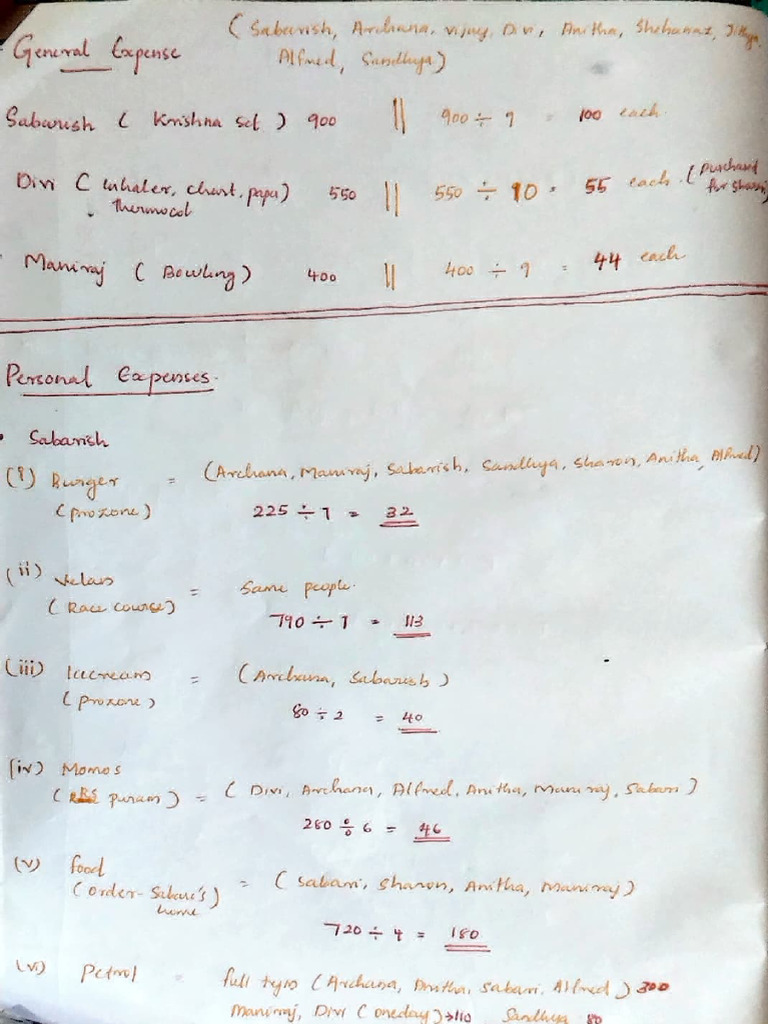 General Expense
(Sabarish, Archana, Vijay, Divi, Anitha, Shehanaz, Jithya,
Alfred, Sandhya)
Sabarish ( Krishna sel ) 900 || 900 ÷ 9 = 100 each
Divi ( Inhaler, chart, papa) 550 || 550 ÷ 10 = 55 each. (Purchased
thermocol for Sharon)
Maniraj ( Bowling) 400 || 400 ÷ 9 = 44 each
Personal Expenses.
• Sabarish
(i) Burger = (Archana, Maniraj, Sabarish, Sandhya, Sharon, Anitha, Alfred)
(prozone) 225 ÷ 7 = 32
(ii) Velan = Same people.
( Race course) 790 ÷ 7 = 113
(iii) Icecream = (Archana, Sabarish )
( prozone ) 80 ÷ 2 = 40
(iv) Momos
( RBS puram ) = ( Divi, Archana, Alfred, Anitha, Maniraj, Sabari )
280 ÷ 6 = 46
(v) food
(order- Sabari's) = ( Sabari, Sharon, Anitha, Maniraj )
home
720 ÷ 4 = 180
(vi) Petrol = full (Archana, Anitha, Sabari, Alfred) 300
Maniraj, Divi (oneday) → 110 Sandhya 80